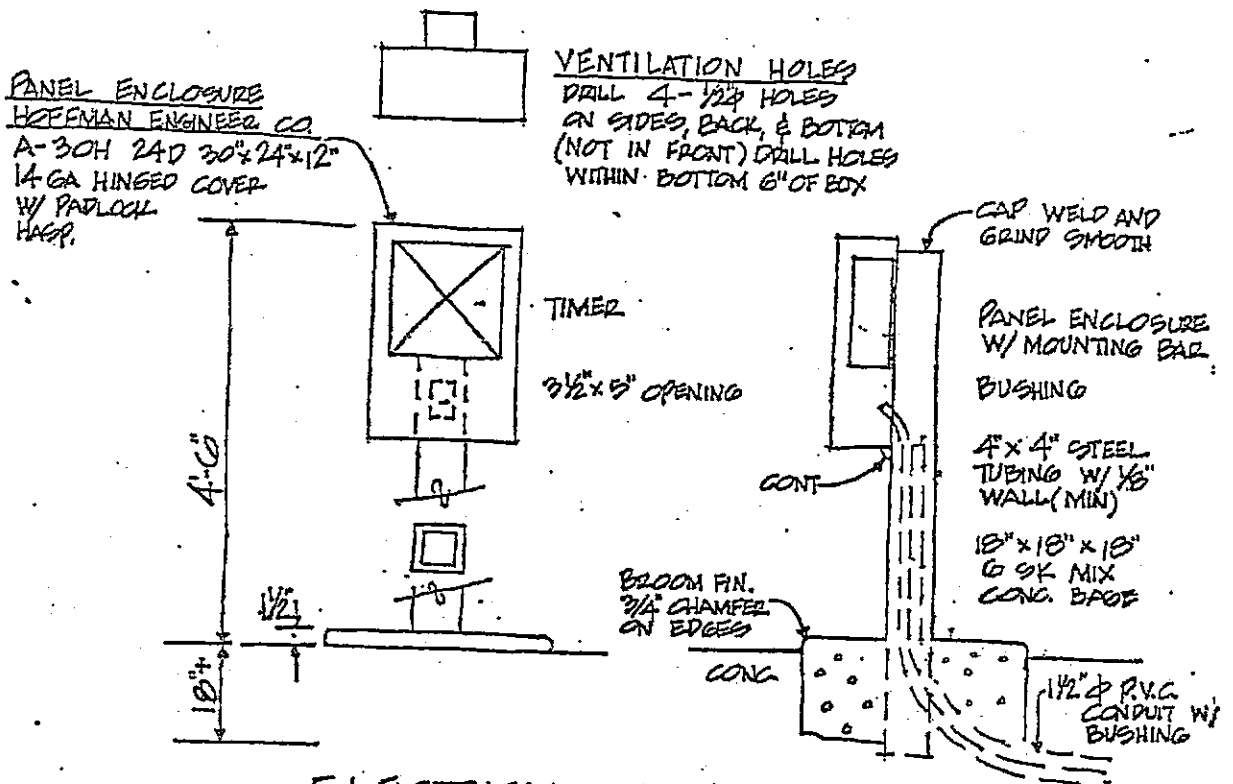 PANEL ENCLOSURE
HOFFMAN ENGINEER CO.
A-30H 24D 30"x24"x12"
14 GA HINGED COVER
W/ PADLOCK
HASP.
VENTILATION HOLES
DRILL 4-1/2φ HOLES
ON SIDES, BACK, & BOTTOM
(NOT IN FRONT) DRILL HOLES
WITHIN BOTTOM 6" OF BOX
CAP WELD AND
GRIND SMOOTH
TIMER
PANEL ENCLOSURE
W/ MOUNTING BAR
3½"x5" OPENING
BUSHING
4'-6"
CONT
4"x4" STEEL
TUBING W/ 1/8"
WALL (MIN)
18"x18"x18"
6 SK MIX
CONC. BASE
BROOM FIN.
3/4" CHAMFER
ON EDGES
1½"
18"+
CONC
1½"φ P.V.C.
CONDUIT W/
BUSHING